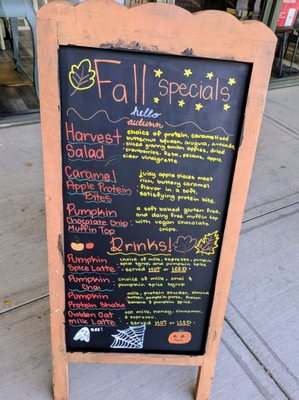 Fall Specials
hello
autumn
Harvest Salad
choice of protein, caramelized
butternut squash, arugula, avocado,
sliced granny smith apples, dried
cranberries, feta, pecans, apple
cider vinaigrette
Caramel Apple Protein Bites
juicy apple pieces meet
rich buttery caramel
flavor in a soft,
satisfying protein bite.
Pumpkin Chocolate Chip Muffin Top
a soft baked gluten free,
and dairy free muffin top
with vegan chocolate
chips.
Drinks!
Pumpkin Spice Latte
choice of milk, espresso, pumpkin
spice syrup, and pumpkin spice
· served HOT or ICED
Pumpkin Chai
choice of milk, chai &
pumpkin spice syrup
Pumpkin Protein Shake
milk, protein powder, almond
butter, pumpkin puree, frozen
banana & pumpkin spice
Golden Oat Milk Latte
oat milk, honey, cinnamon,
& espresso
· served HOT or ICED
BOO!